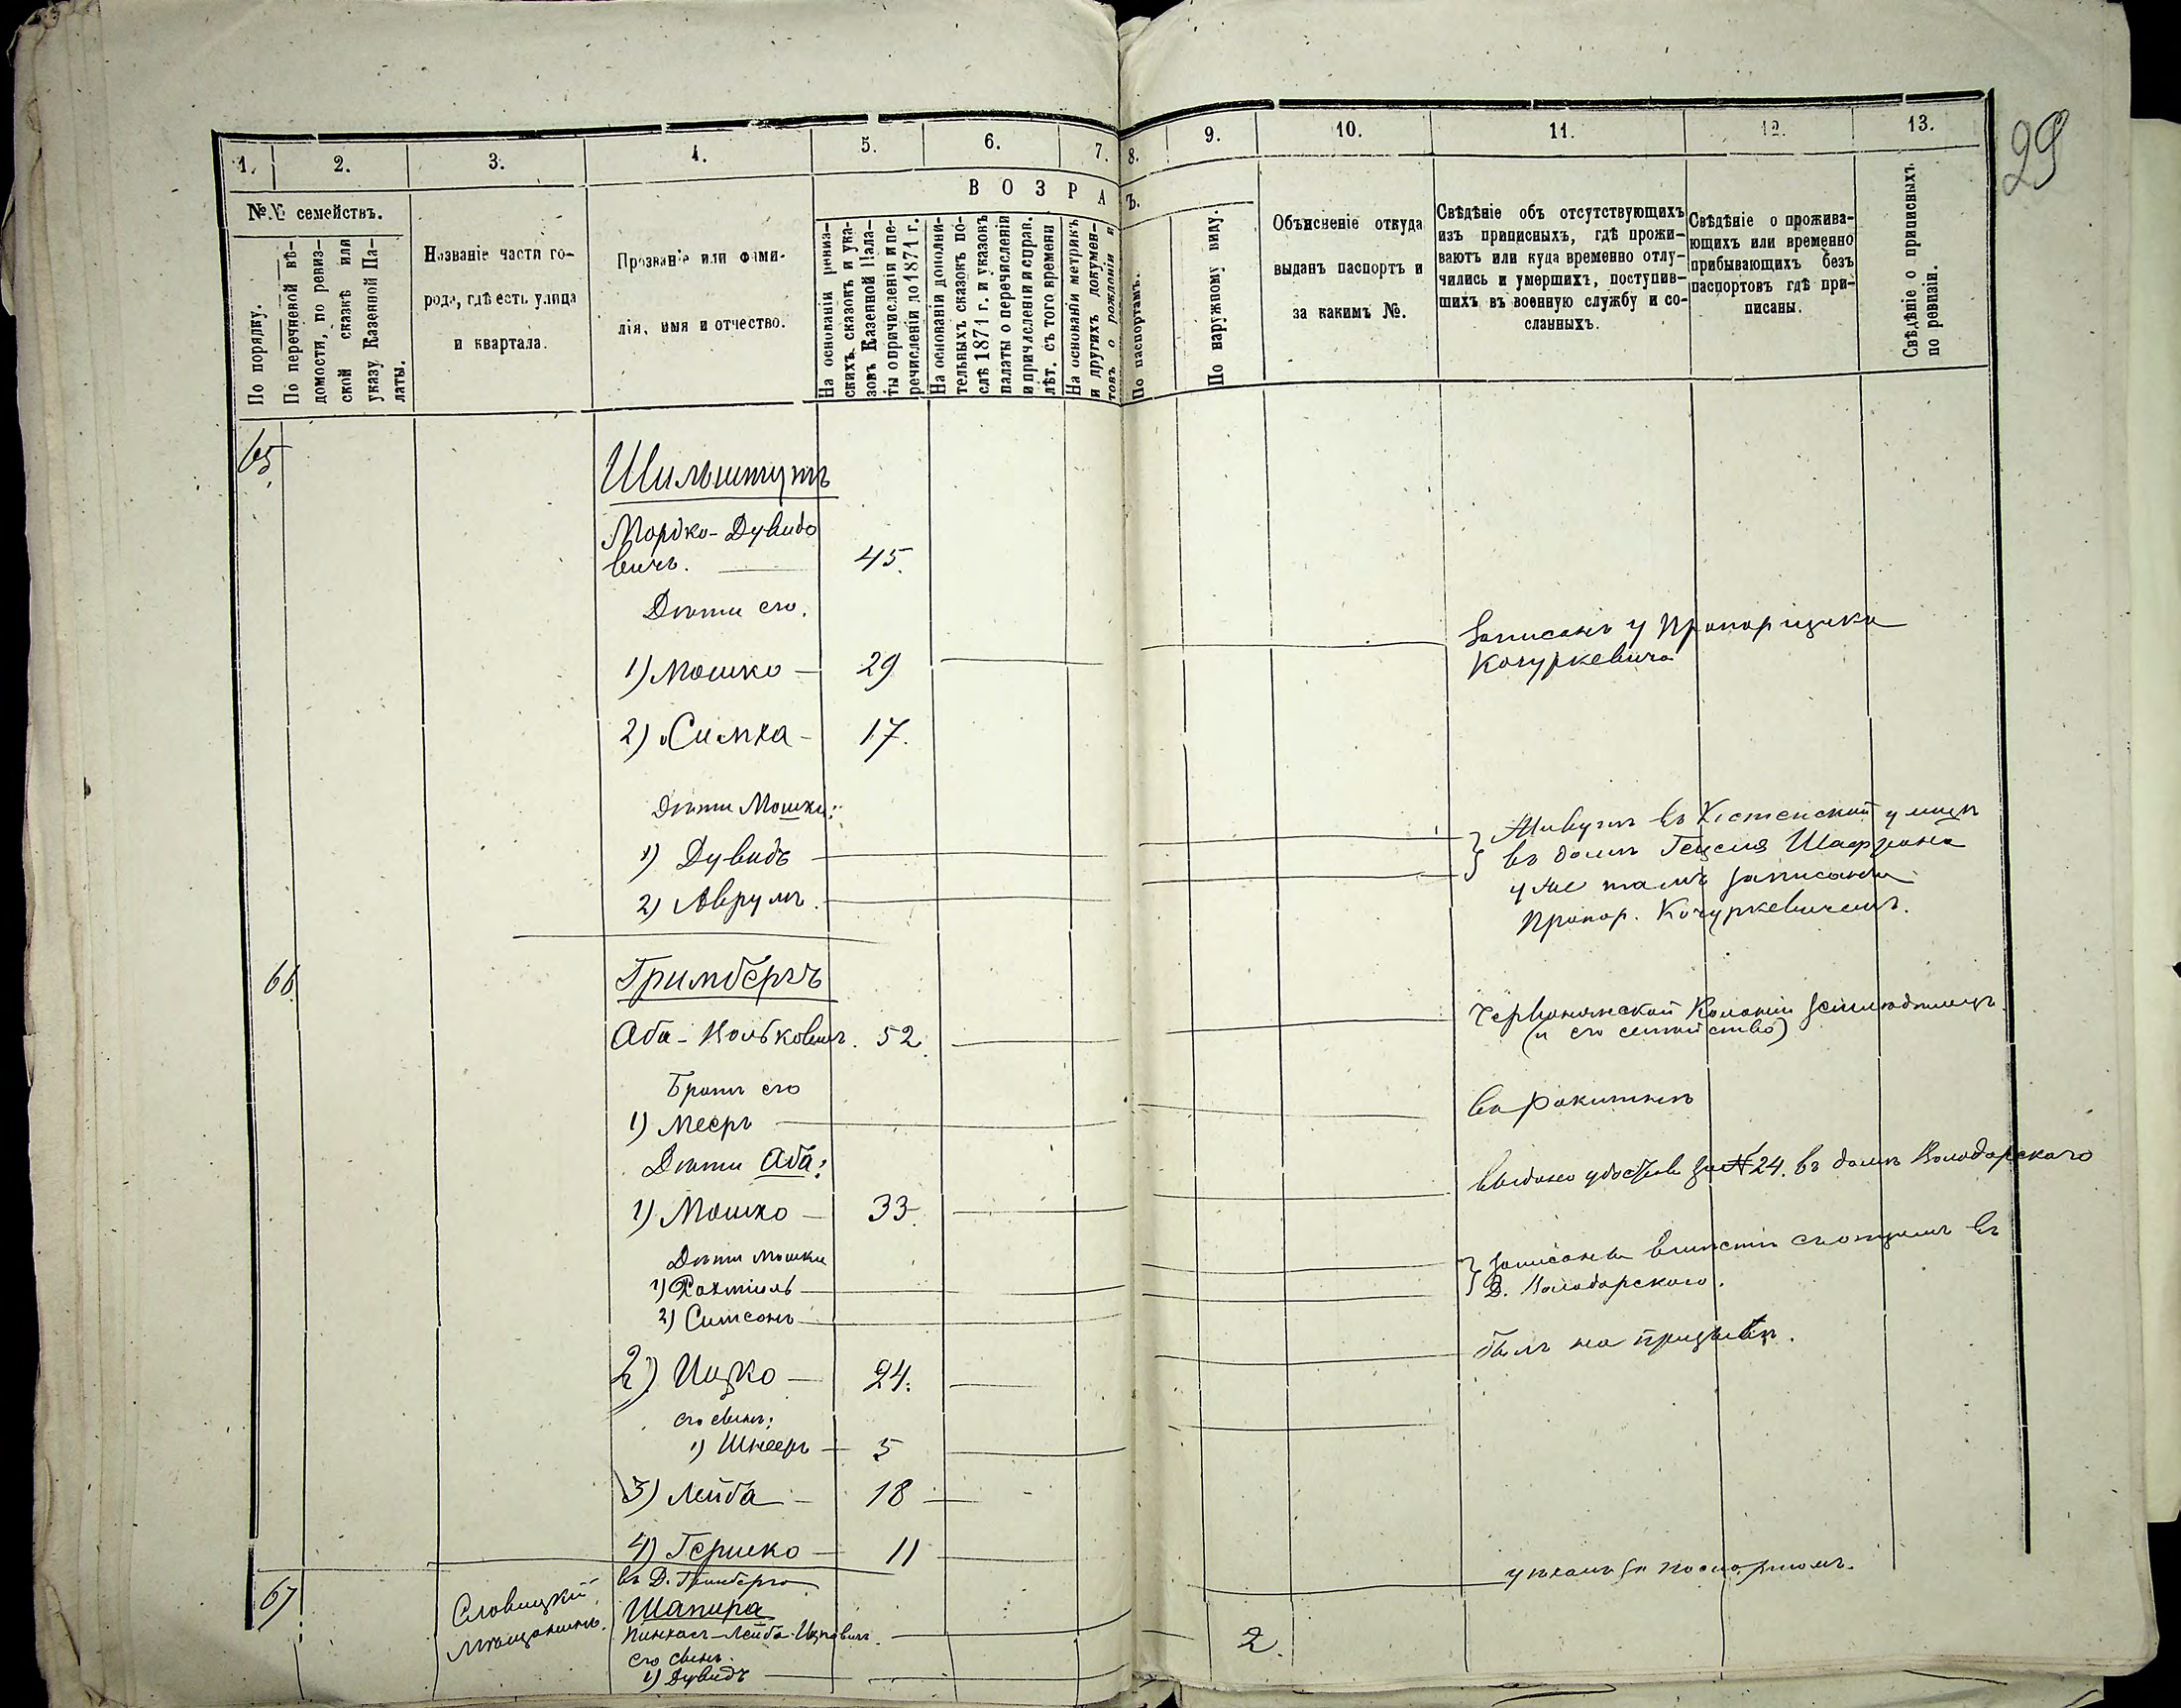 29
1. 2. 3. 4. 5. 6. 7. 8. 9. 10. 11. 12. 13.
№№ семействъ.
По порядку.
По перечневой вѣ-
домости, по ревиз-
ской сказкѣ или
указу Казенной Па-
латы.
Названіе части го-
рода, гдѣ есть улица
и квартала.
Прозваніе или фами-
лія, имя и отчество.
ВОЗРА
Ъ.
На основаніи ревиз-
скихъ сказокъ и ука-
зовъ Казенной Пала-
ты о причисленіи и пе-
речисленіи до 1871 г.
На основаніи дополни-
тельныхъ сказокъ по-
слѣ 1871 г. и указовъ
палаты о перечисленіи
и причисленіи и справ.
лѣт. съ того времени
На основаніи метрикъ
и другихъ докумен-
товъ о рожденіи и
По паспортамъ.
По наружному виду.
Объясненіе откуда
выданъ паспортъ и
за какимъ №.
Свѣдѣніе объ отсутствующихъ
изъ приписныхъ, гдѣ прожи-
ваютъ или куда временно отлу-
чились и умершихъ, поступив-
шихъ въ военную службу и со-
сланныхъ.
Свѣдѣніе о прожива-
ющихъ или временно
прибывающихъ безъ
паспортовъ гдѣ при-
писаны.
Свѣдѣніе о приписныхъ
по ревизіи.
65
Шильштутъ
Мордко-Дувидо
вичъ. 45.
Дѣти его.
1) Мошко 29 Записанъ у Прапорщика
Кочуркевича
2) Симха 17.
Дѣти Мошки:
1) Дувидъ
2) Аврумъ.
Живутъ въ улицѣ
въ домѣ Гецеля Шафрана
уже тамъ записаны
Прапор. Кочуркевичемъ.
66
Гримбергъ
Аба-Вольковичъ. 52. Червонянской Колоніи земледѣлецъ
(и его семейство)
Братъ его
1) Мееръ въ Ракитнѣ
Дѣти Аба:
1) Мошко 33. выдано удостов за № 24. въ домѣ Володарскаго
Дѣти Мошки
1) Рахмиль
2) Симсонъ
записаны вмѣстѣ съ отцемъ въ
Д. Володарскаго.
2) Ицко 24. былъ на призывѣ.
его сынъ:
1) Шнееръ 5
3) Лейба 18
4) Гершко 11
67 Словицкій
мѣщанинъ.
въ Д. Гримберга
Шапира уѣхалъ за паспортомъ.
Пинхасъ-Лейба Ицковичъ. 2.
его сынъ.
1) Дувидъ